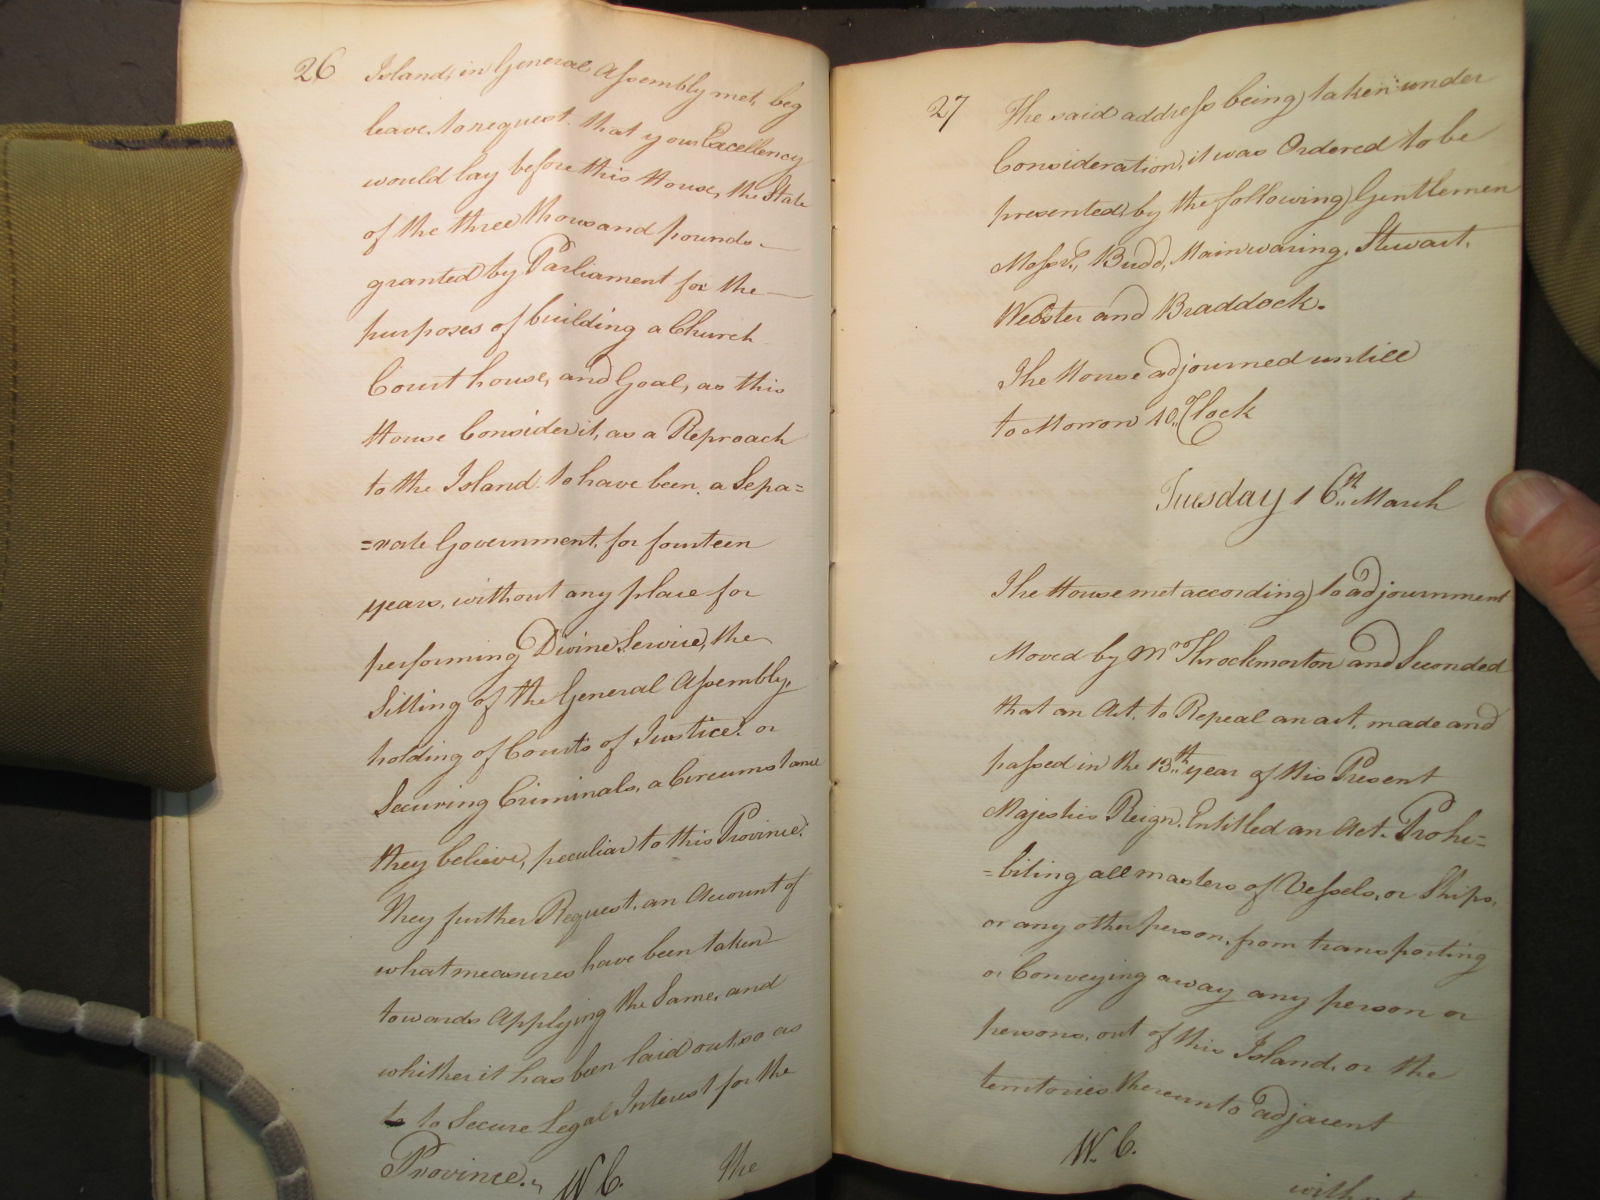 26
Island, in General Assembly met, beg
leave, to request. that your Excellency
would lay before this House, the State
of the three thousand pounds
granted by Parliament for the
purposes of building a Church
Court house, and Goal, as this
House Consider it, as a Reproach
to the Island. to have been, a Sepa=
=rate Government, for fourteen
years, without any place for
performing Divine Service, the
Sitting of the General Assembly,
holding of Courts of Justice, or
Securing Criminals, a Circumstance
they believe, peculiar to this Province.
They further Request, an Account of
what measures have been taken
towards Applying the Same, and
whither it has been laid out, so as
to to Secure Legal Interest for the
Province.
W C. the
27
The said address being taken under
Consideration, it was Ordered to be
presented, by the following Gentlemen
Messrs., Budd, Mainwaring, Stewart,
Webster and Braddock.
The House adjourned untill
to Morrow 10, Clock
Tuesday 16th. March
The House met according to adjournment
Moved by Mr Throckmorton and Seconded
that an Act, to Repeal an act, made and
passed in the 13th. year of His Present
Majesties Reign, Entitled an Act. Prohi=
=biting all masters of Vessels, or Ships,
or any other person, from transporting
or Conveying away any person or
persons, out of this Island, or the
territories thereunto adjacent
W. C.
without